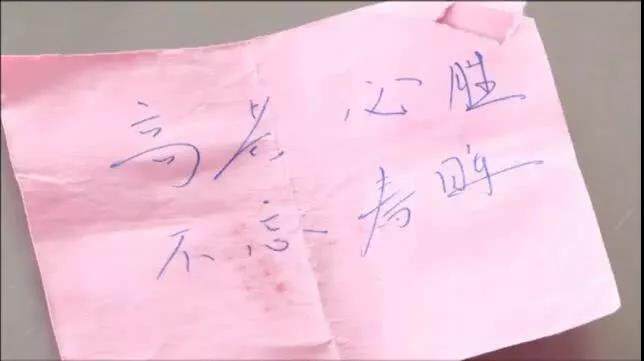 高考 必胜
不忘 春晖